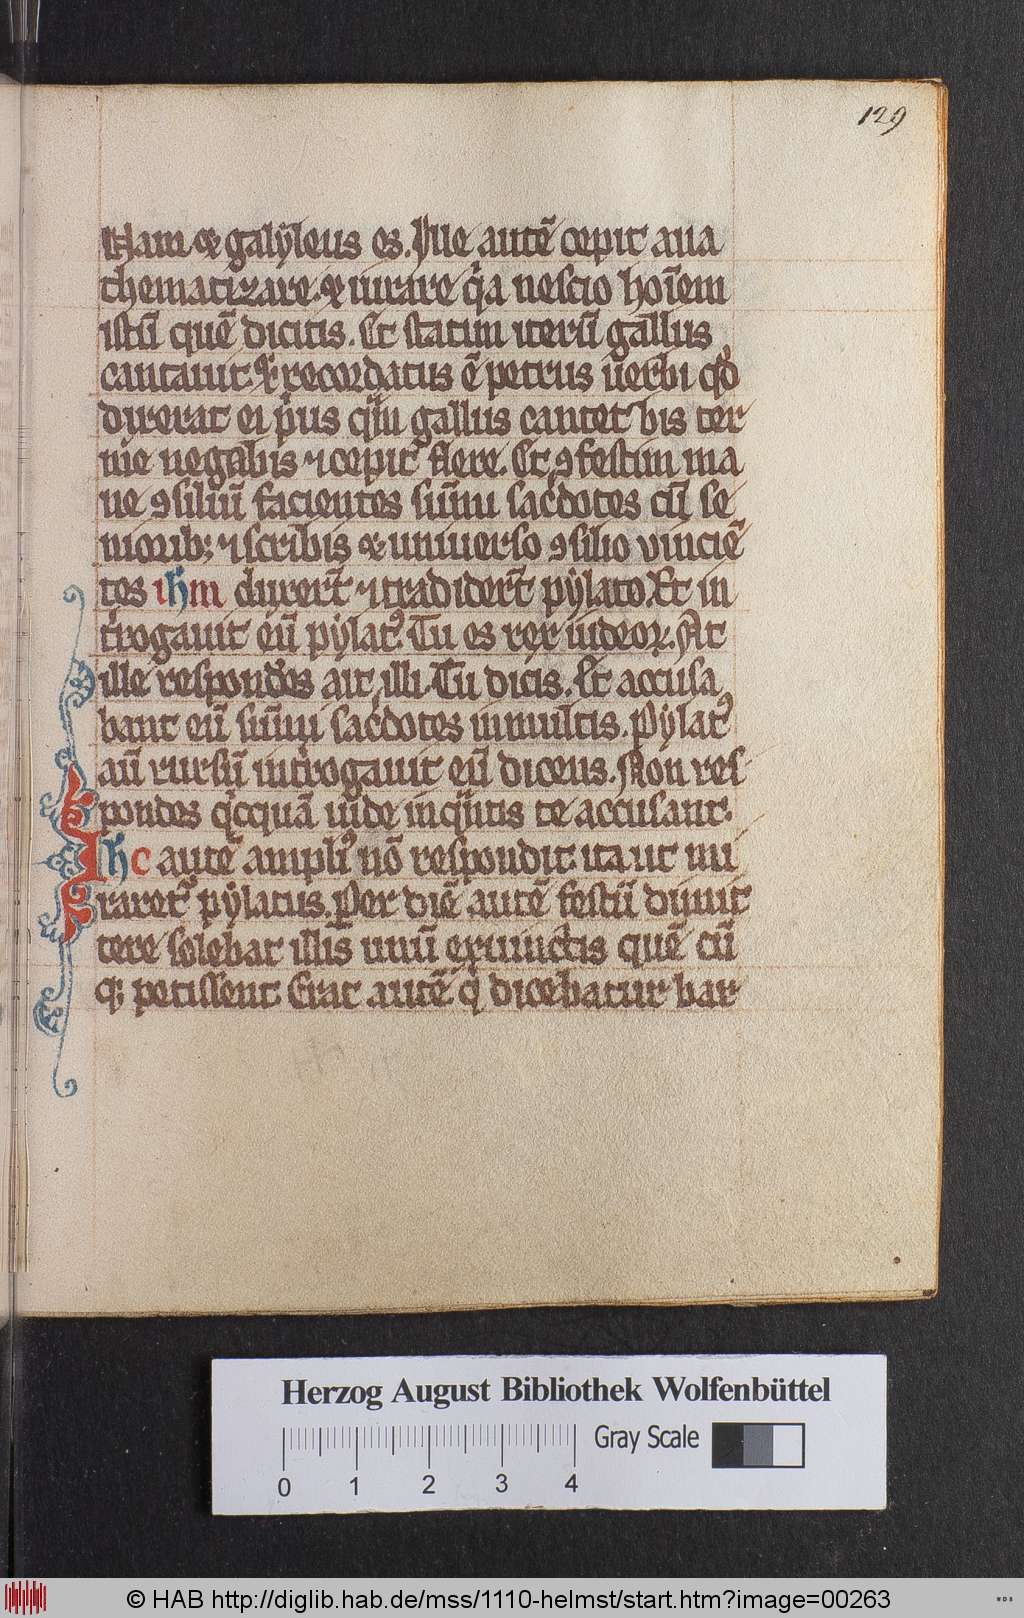 129
Nam et galyleus es. Ille autē cepit ana
thematizare. et iurare qͥa nescio hoīem
istū quē dicitis. Et statim iterū gallus
cantauit. Et recordatus ē petrus uerbi qd̛
dixerat ei pͥus qͣm gallus cantet bis ter
me negabis ⁊ cepit flere. Et ꝯfestim ma
ne ꝯsiliū facientes sūmi sac̛dotes cū se
niorib; ⁊ scribis et uniuerso ꝯsilio vinciē
tes ihm duxer̄t ⁊ tradider̄t pylato. Et in
t̛rogauit eū pylatꝰ. Tu es rex iudeoꝝ. At
ille respond̛es ait illi. Tu dicis. Et accusa
bant eū sūmi sac̛dotes in multis. Pylatꝰ
aū rursū int̛rogauit eū dicens. Non res-
pondes qͥcquā uide in qͣntis te accusant.
Ihc autē ampliꝰ nō respondit. ita ut mi
raretᷣ pylatus. Per diē autē festū dimit
tere solebat illis unū ex uinctis quē cū
q; petissent. Erat autē qͥ dicebatur bar
Herzog August Bibliothek Wolfenbüttel
0 1 2 3 4
Gray Scale
© HAB http://diglib.hab.de/mss/1110-helmst/start.htm?image=00263